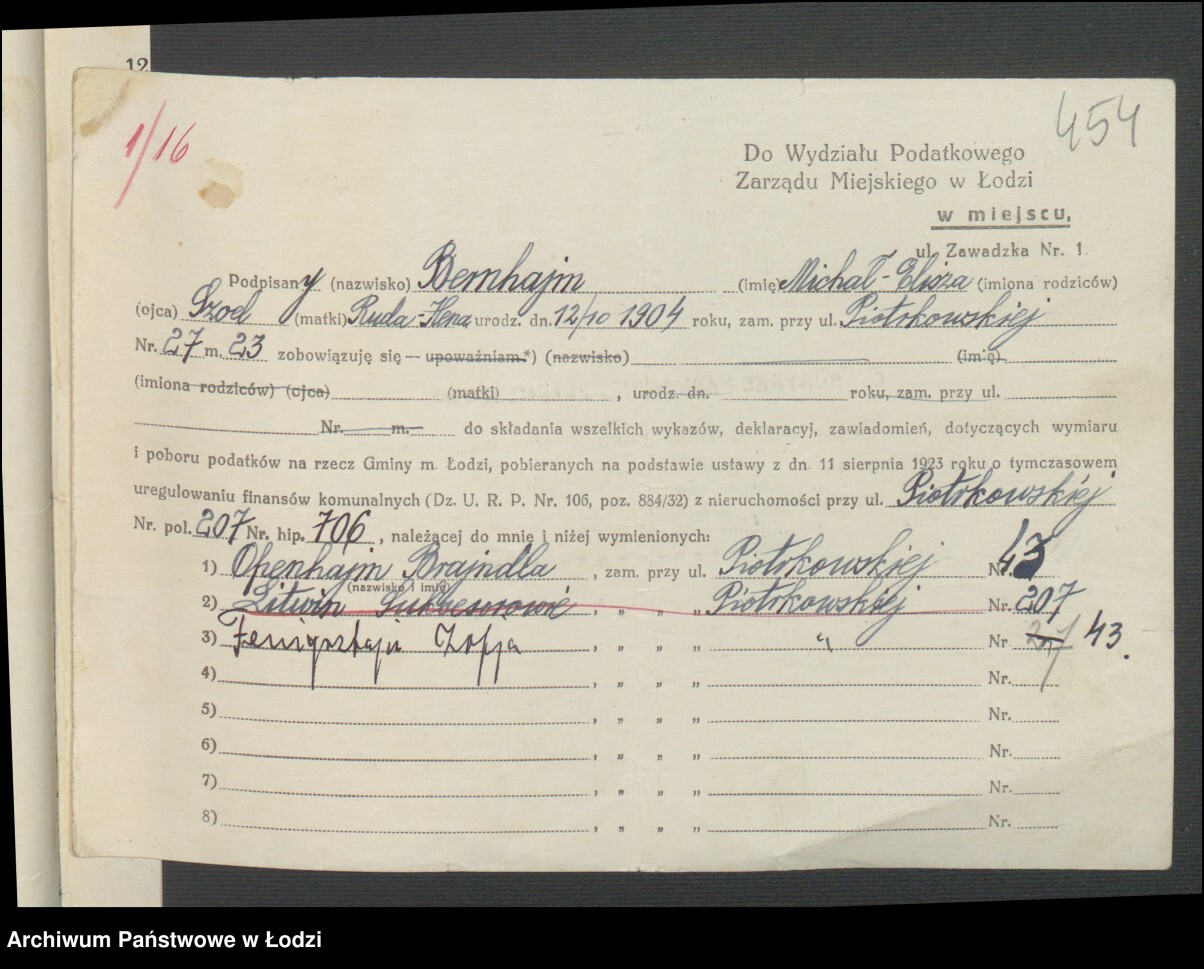 12
1/16
454
Do Wydziału Podatkowego
Zarządu Miejskiego w Łodzi
w miejscu,
ul. Zawadzka Nr. 1
Podpisany (nazwisko) Bernhajm (imię) Michał-Elisza (imiona rodziców)
(ojca) Szoel (matki) Ruda-Hena urodz. dn. 12/10 1904 roku, zam. przy ul. Piotrkowskiej
Nr. 27 m. 23 zobowiązuję się — upoważniam*) (nazwisko) (imię)
(imiona rodziców) (ojca) (matki) , urodz. dn. roku, zam. przy ul.
Nr. m. do składania wszelkich wykazów, deklaracyj, zawiadomień, dotyczących wymiaru
i poboru podatków na rzecz Gminy m. Łodzi, pobieranych na podstawie ustawy z dn. 11 sierpnia 1923 roku o tymczasowem
uregulowaniu finansów komunalnych (Dz. U. R. P. Nr. 106, poz. 884/32) z nieruchomości przy ul. Piotrkowskiej
Nr. pol. 207 Nr. hip. 706 , należącej do mnie i niżej wymienionych:
1) Openhajm Brajndla , zam. przy ul. Piotrkowskiej Nr. 43
(nazwisko i imię)
2) Litwin Sukcesorowie , „ „ „ Piotrkowskiej Nr. 207
3) Fenigsztajn Zofja , „ „ „ „ Nr. 27 43.
4) , „ „ „ Nr.
5) , „ „ „ Nr.
6) , „ „ „ Nr.
7) , „ „ „ Nr.
8) , „ „ „ Nr.
Archiwum Państwowe w Łodzi